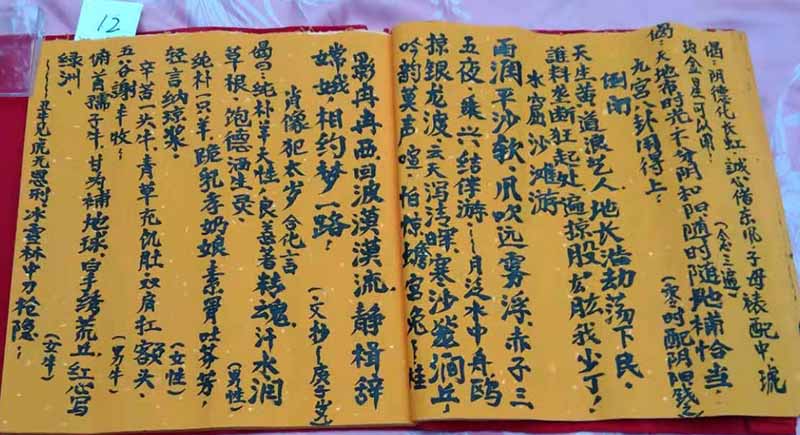 12
偈：阴德化长虹，誠心借东风，子母錶配中，琥
珀金星可以用！（念三遍）
偈：天地君时光不分阴和阳随时随地補恰当，
九宫八卦用得上！（零时配阴阳錢）
倒闭
天生黄道浪艺人，地长浩劫荡下民，
誰料垄断狂起处，遍掠股肱我少丁！
水窟沙滩游
雨润平沙软，爪吹远雾浮，赤子三
五夜，乘兴结伴游，～月泛水中舟，鸥
掠银龙波，云天泻清暉，寒沙 涧丘，
吟韵莫声喧，怕惊 宫兔！ 性
影冉冉西，回波漠漠流，静楫辞
嫦娥，相约梦一路！
（文抄～庚子岁）
肖像犯太岁 合化言
偈曰：纯朴羊天性，良善者精魂，汗水润
草根，饱德洒生灵。（男性）
纯朴一只羊，跪乳孝奶娘，素胃吐芬芳，
轻言纳琼浆。（女性）
辛苦一头牛，青草充饥肚，双肩扛额头，
五谷谢丰收。（男牛）
俯首孺子牛，甘为補地球，白手绣荒丘，红心写
绿洲。（女牛）
～～～丑 见戌无恩刑 冰雪林中刀枪隐：